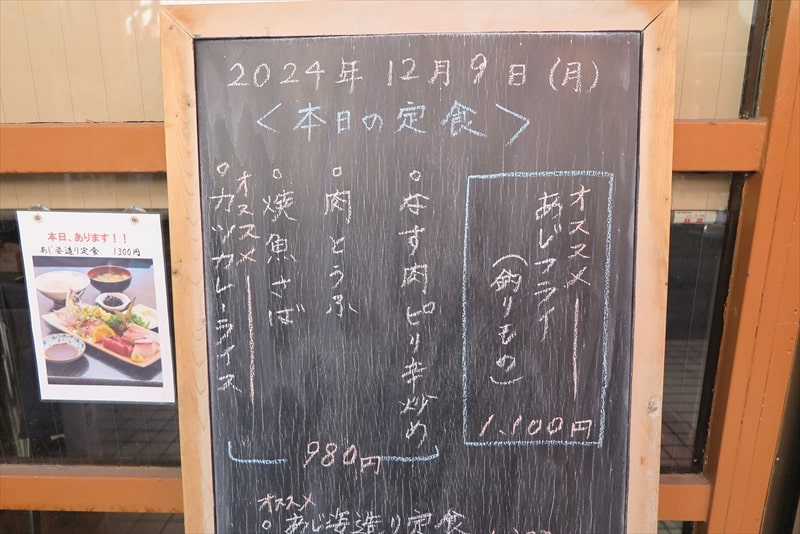 2024年 12月9日(月)
<本日の定食>
オススメ
あじフライ
(釣りもの)
1,100円
○なす肉ピリ辛炒め
○肉とうふ
○焼魚さば
オススメ
○カツカレーライス
980円
オススメ
○あじ姿造り定食
本日、あります!!
あじ姿造り定食 1300円